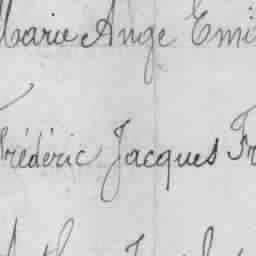 Marie Ange Emi
Frédéric Jacques Fr